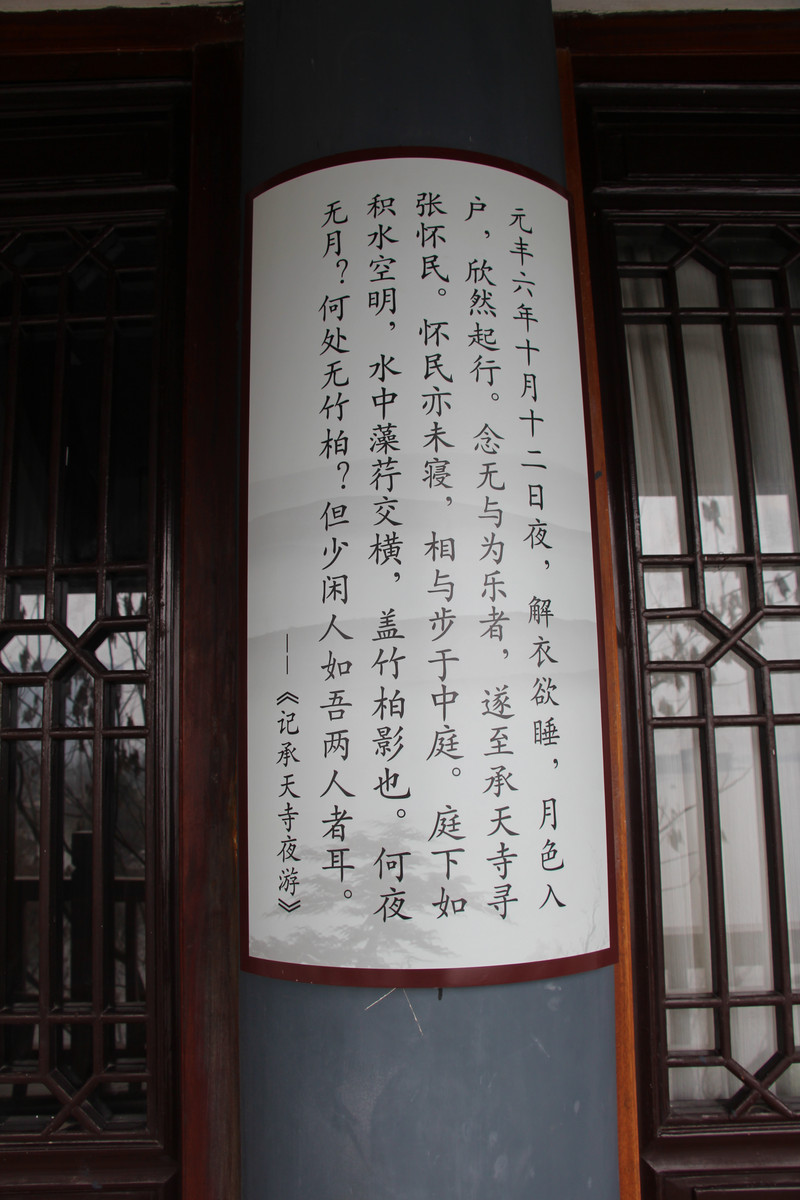 元丰六年十月十二日夜，解衣欲睡，月色入
户，欣然起行。念无与为乐者，遂至承天寺寻
张怀民。怀民亦未寝，相与步于中庭。庭下如
积水空明，水中藻荇交横，盖竹柏影也。何夜
无月？何处无竹柏？但少闲人如吾两人者耳。
——《记承天寺夜游》